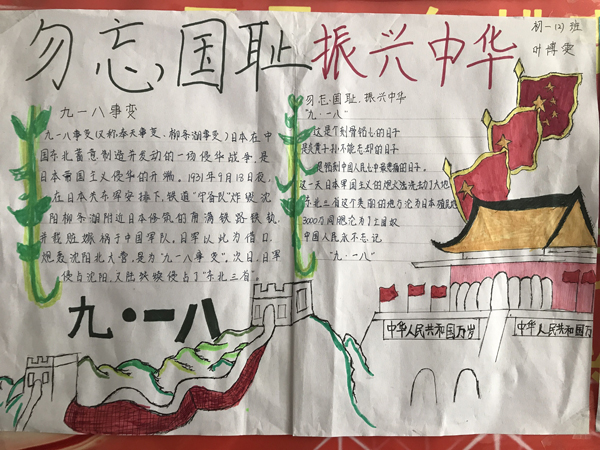 勿忘国耻 振兴中华
初一(2)班
叶博雯
九一八事变
九一八事变(又称奉天事变、柳条湖事变)日本在中
国东北蓄意制造并发动的一场侵华战争,是
日本帝国主义侵华的开端。1931年9月18日夜,
在日本关东军安排下,铁道"守备队"炸毁沈
阳柳条湖附近日本修筑的南满铁路铁轨
并栽赃嫁祸于中国军队。日军以此为借口,
炮轰沈阳北大营,是为"九一八事变"。次日,日军
侵占沈阳,又陆续侵占了"东北三省"。
九·一八
勿忘国耻、振兴中华
"九·一八"
这是个刻骨铭心的日子
是炎黄子孙不能忘却的日子
是铭刻中国人民心中最悲痛的日子。
这一天日本军国主义的炮火
东北三省这个美丽的地方沦为日本殖民地
3000万同胞沦为了亡国奴
中国人民永不忘记
"九·一八"
中华人民共和国万岁
中华人民共和国万